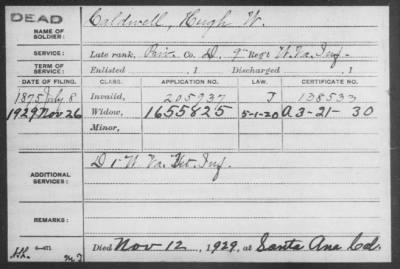 DEAD
NAME OF SOLDIER: Caldwell, Hugh W.
SERVICE: Late rank, Priv. Co. D, 9" Reg't W. Va. Inf.
TERM OF SERVICE: Enlisted , 1 Discharged , 1
DATE OF FILING. CLASS. APPLICATION NO. LAW. CERTIFICATE NO.
1875 July 8 Invalid, 205937 J 138533
1929 Nov 26 Widow, 1655825 5-1-20 A 3-21-30
Minor,
ADDITIONAL SERVICES: D 1" W Va. Vet. Inf.
REMARKS:
Died Nov 12, 1929, at Santa Ana Cal.